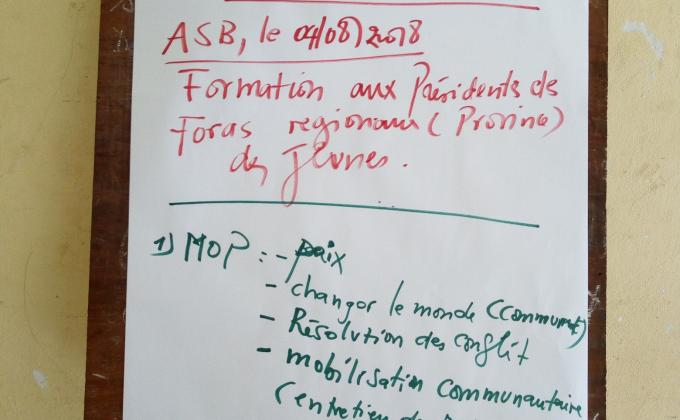 ASB, le 04/08/2018
Formation aux Présidents des
Foras regionaux (Province)
des Jeunes.
1) MOP : - paix
- changer le monde (Communet)
- Résolution des conflit
- mobilisation communautaire
(entretien